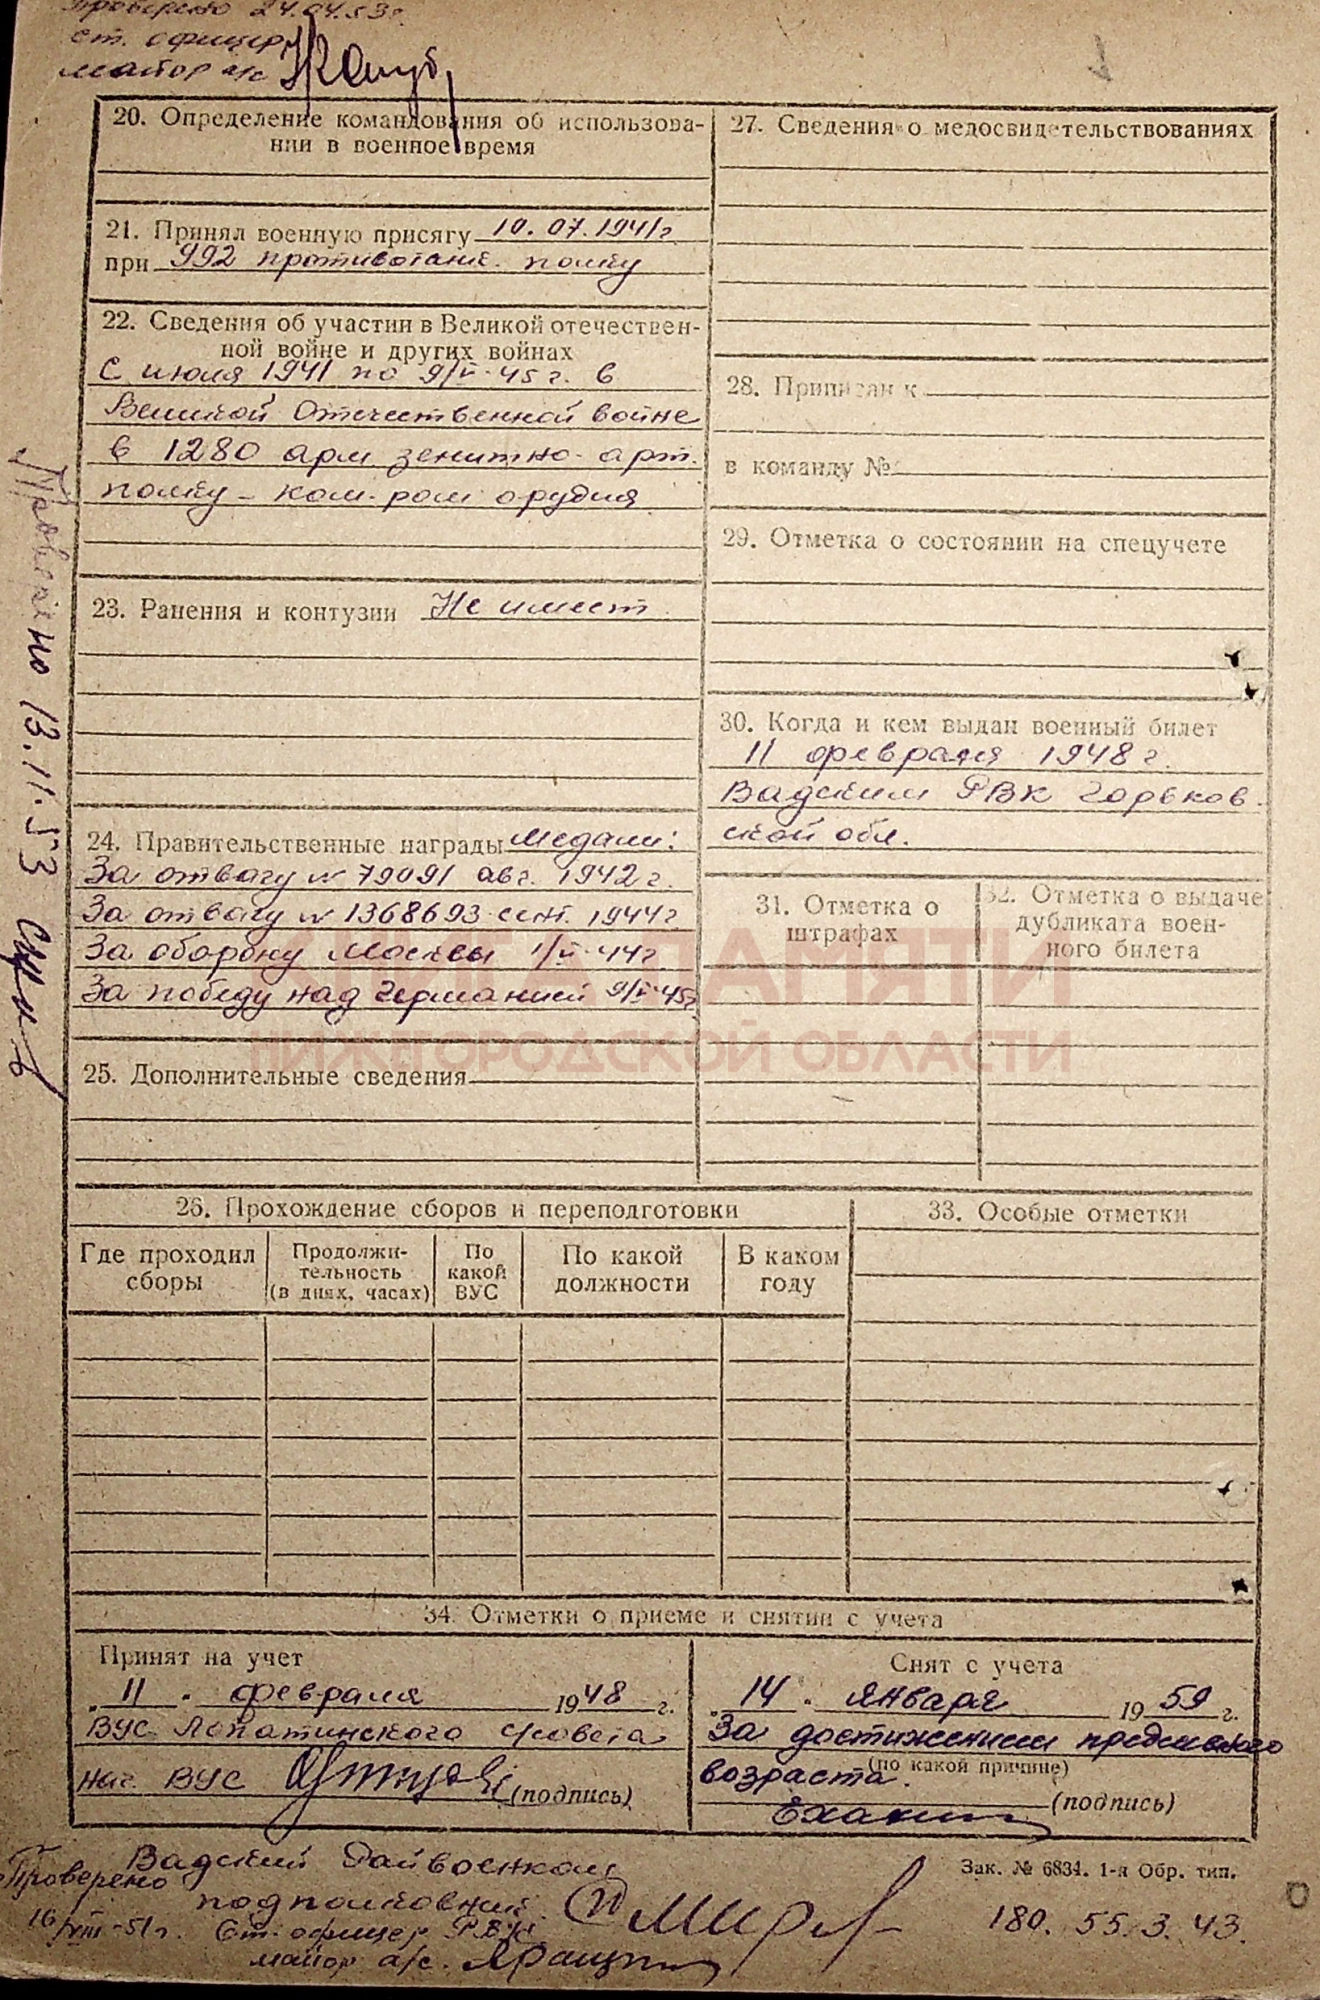 Проверено 24.04.53г.
ст. офицер
майор а/с
20. Определение командования об использова-
нии в военное время
21. Принял военную присягу 10.07.1941г
при 992 противотанк. полку
22. Сведения об участии в Великой отечествен-
ной войне и других войнах
С июля 1941 по 9/V-45г. в
Великой Отечественной войне
в 1280 арм зенитно-арт.
полку - ком-ром орудия
23. Ранения и контузии Не имеет
24. Правительственные награды Медали:
За отвагу № 79091 авг. 1942г.
За отвагу № 1368693 сент. 1944г
За оборону Москвы 1/V-44г
За победу над Германией 9/V-45г
25. Дополнительные сведения
26. Прохождение сборов и переподготовки
Где проходил
сборы
Продолжи-
тельность
(в днях, часах)
По
какой
ВУС
По какой
должности
В каком
году
27. Сведения о медосвидетельствованиях
28. Приписан к
в команду №
29. Отметка о состоянии на спецучете
30. Когда и кем выдан военный билет
11 февраля 1948г.
Вадским РВК Горьков
ской обл.
31. Отметка о
штрафах
32. Отметка о выдаче
дубликата воен-
ного билета
33. Особые отметки
34. Отметки о приеме и снятии с учета
Принят на учет
"11" февраля 1948 г.
ВУС Лопатинского с/совета
нач. ВУС (подпись)
Снят с учета
"14" января 1959 г.
За достижением предельного
возраста. (по какой причине)
(подпись)
Проверено 13.11.53
Вадский Райвоенком
подполковник
Проверено
16/VIII-51г. Ст. офицер РВК
майор а/с.
Зак. № 6834. 1-я Обр. тип.
180. 55. 3. 43.
КНИГА ПАМЯТИ
НИЖЕГОРОДСКОЙ ОБЛАСТИ